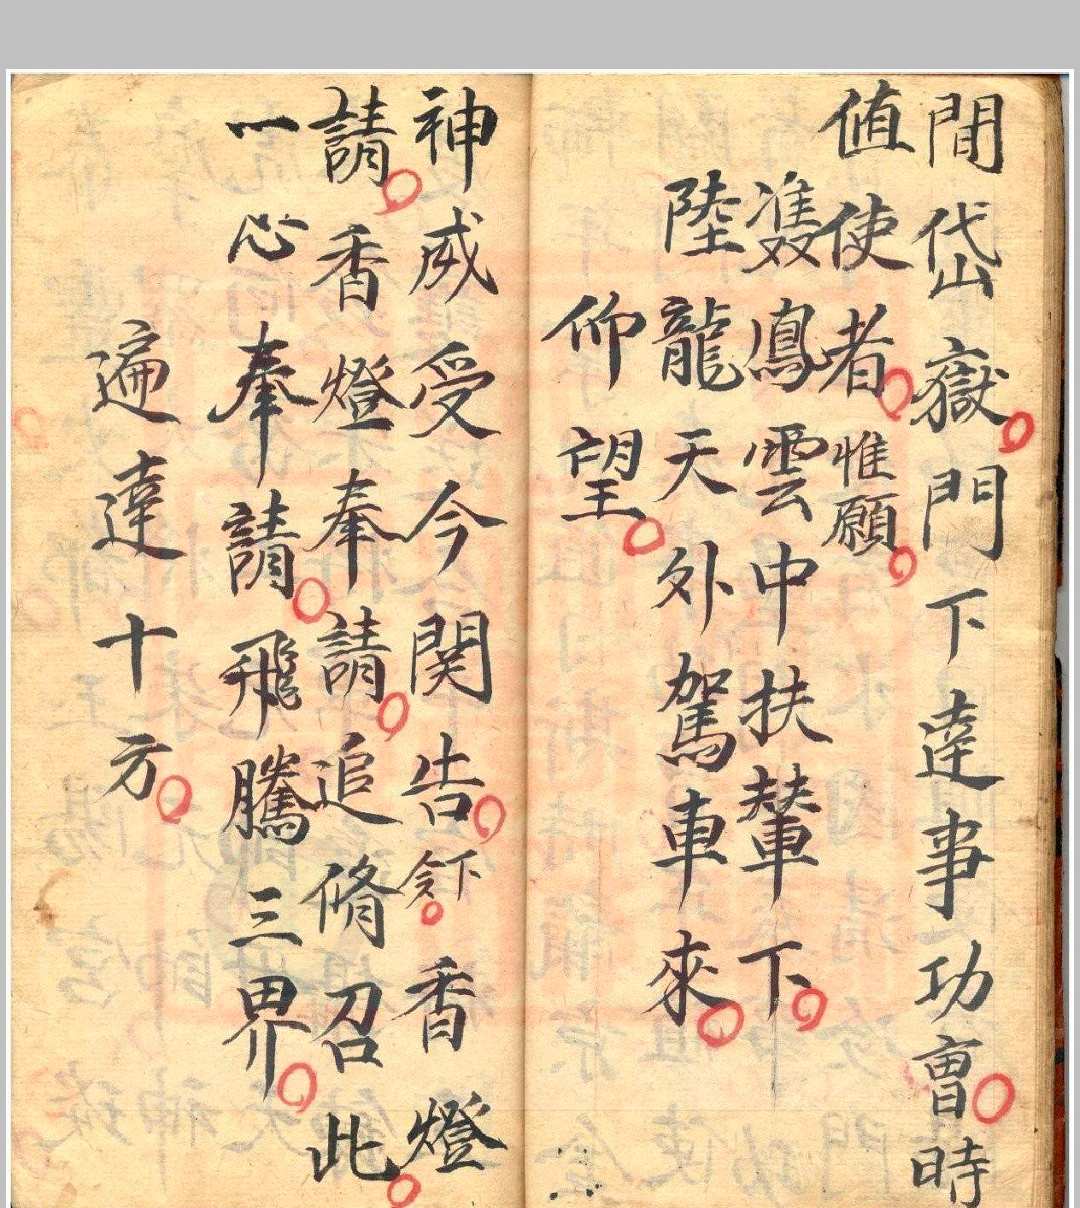 間岱嶽○門下達事功曹○時
值使者○惟願○
鳳雲中扶輦下○
陸龍天外駕車來○
仰望○
神威受今関告○下○香燈
請○香燈奉請○追脩召此○
一心奉請○飛騰三界○
遍達十方○